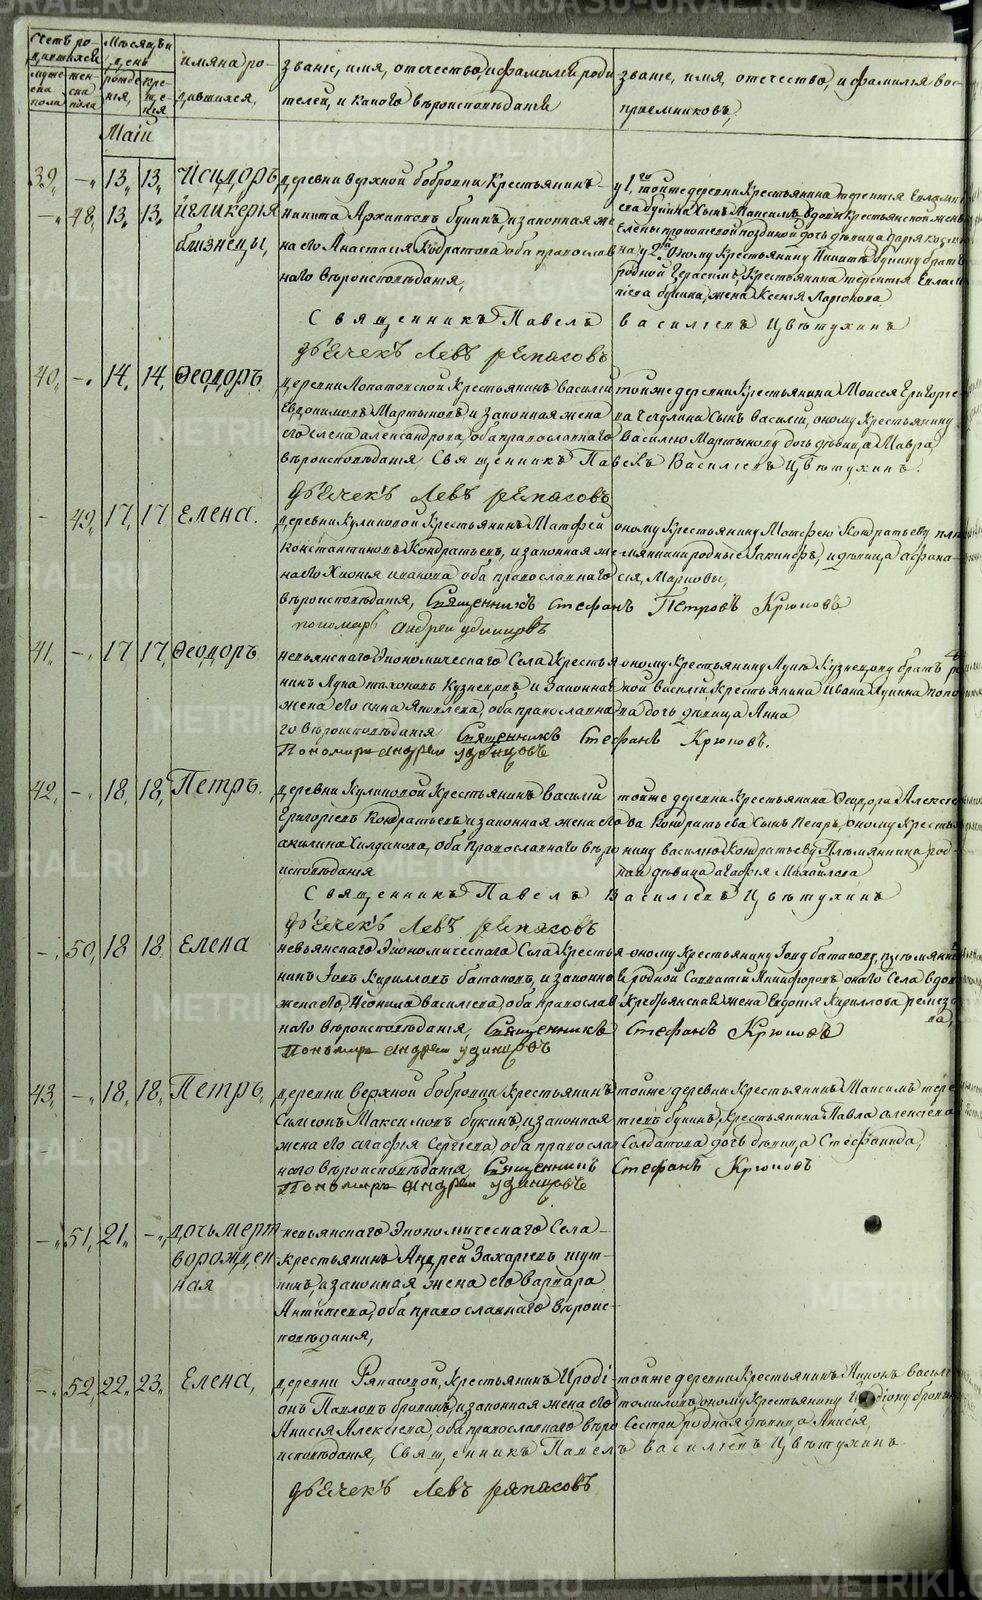 METRIKI.GASO-URAL.RU
Счетъ ро-
дившихся
Мѣсяцъ и
день
имяна ро-
дившихся,
званіе, имя, отечество, и фамиліи роди
телей, и какого вѣроисповѣданія
званіе, имя, отечество, и фамилія вос-
пріемниковъ,
муже
ска
пола
жен
ска
пола
рожде
нія,
кре-
ще-
нія
Маій
39, - 13, 13, Исидоръ, деревни верхной бобровки Крестьянинъ
- 48, 13, 13, и Гликерія никита Архиповъ букинъ, и законная же
близнецы, на его Анастасія Кодратова оба православ
наго вѣроисповѣданія,
у 1го тойже деревни Крестьянина терентья Евламп
іева букина сынъ Максимъ, вдовы крестьянской жены
дочь дѣвица Дарья
на, у 2й оному Крестьянину Никитѣ букину братъ
родной Герасимъ, Крестьянина терентія Евламп
піева букина, жена Ксенія Ларіонова
Священникъ Павелъ Василіевъ Цвѣтухинъ
дьячекъ Левъ ряпасовъ
40, - 14, 14, Ѳеодоръ
деревни Лопатовской Крестьянинъ василій
Евфимовъ Мартыновъ и законная жена
его Елена александрова, оба православнаго
вѣроисповѣданія Священникъ Павелъ Василіевъ Цвѣтухинъ.
тойже деревни Крестьянина Моисея Григорье
ва Чечулина Сынъ Василій, оному Крестьянину
Василью Мартынову дочь дѣвица Мавра,
дьячекъ Левъ ряпасовъ
- 49, 17, 17 Елена.
деревни Куликовой Крестьянинъ Матфей
константиновъ Кондратьевъ, и законная же
на его Хіонья иванова оба православнаго
вѣроисповѣданія, Священникъ Стефанъ Петровъ Крюковъ
оному Крестьянину Матфею Кондратьеву пле
мянники родные Іакинфъ, и дѣвица Афана-
сія, Марковы,
пономарь андрей удинцовъ
41, - 17 17, Ѳеодоръ
невьянскаго Экономическаго Села Крестья
нинъ Лука тихоновъ Кузнецовъ и законная
жена его анна Яковлева, оба православна
го вѣроисповѣданія Священникъ Стефанъ Крюковъ.
оному Крестьянину Лукѣ Кузнецову братъ род
ной василій, Крестьянина Ивана Лукина попо
ва дочь дѣвица Анна
Пономарь андрей удинцовъ
42, - 18, 18, Петръ.
деревни Куликовой Крестьянинъ василій
Григоріевъ Кондратьевъ и законная жена его
акилина Хилданова, оба Православнаго вѣро
исповѣданія
тойже деревни Крестьянина Ѳеодора Алексѣе
ва Кондратьева Сынъ Петръ, оному Кресть
нину василью Кондратьеву Племянница род-
ная дѣвица агафія Михайлова
Священникъ Павелъ Василіевъ Цвѣтухинъ
дьячекъ Левъ ряпасовъ
- 50, 18 18, Елена
невьянскаго Экономическаго Села Крестья
нинъ Іовъ Кириловъ батаковъ, и законная
жена его, Неонила васильева, оба православ
наго вѣроисповѣданія, Священникъ Стефанъ Крюковъ
оному Крестьянину Іову батакову, племянни
къ родной Савватій Никифоровъ онаго Села вдова
Крестьянская жена Евдотья Кирилова ремезо
ва,
Пономарь андрей удинцовъ
43, - 18, 18, Петръ,
деревни Верхной бобровки Крестьянинъ
Симеонъ Максимовъ букинъ, и законная
жена его агафія Сергіева, оба православ
наго вѣроисповѣданія, Священникъ Стефанъ Крюковъ
тойже деревни Крестьянинъ Максимъ тере
тіевъ букинъ, Крестьянина Павла алексіева
Солдатова дочь дѣвица Стефанида,
Пономарь андрей удинцовъ
- 51, 21, - дочь мерт
ворожден
ная
невьянскаго Экономическаго Села
крестьянинъ Андрей Захаріевъ шут-
кинъ, и законная жена его варвара
Антипева, оба православнаго вѣроис-
повѣданія,
- 52, 22, 23, Елена,
деревни Ряпасовой, Крестьянинъ Иродi-
онъ Павловъ бровинъ, и законная жена его
Анисія Алексѣева, оба православнаго вѣро
исповѣданія, Священникъ Павелъ василіевъ Цвѣтухинъ
тойже деревни Крестьянинъ Миронъ Василь
оному Крестьянину Иродіону бровину
Сестра родная дѣвица Анисія,
дьячекъ Левъ ряпасовъ